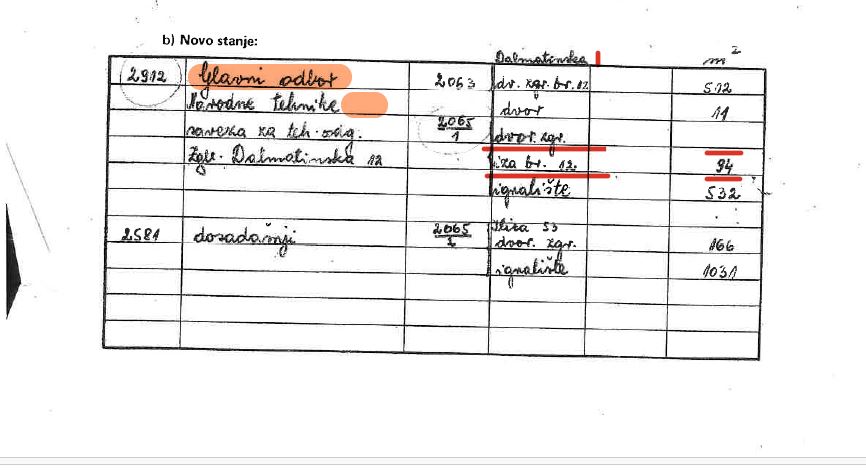 b) Novo stanje:
Dalmatinska m²
2912 Glavni odbor 2063 dv. zgr. br. 12 512
Narodne tehnike dvor 11
saveza za teh. odg. 2065/1 dvor. zgr.
Zgb. Dalmatinska 12 iza br. 12. 94
igralište 532
2581 dosadašnji 2065/2 Ilica 53
dvor. zgr. 166
igralište 1031